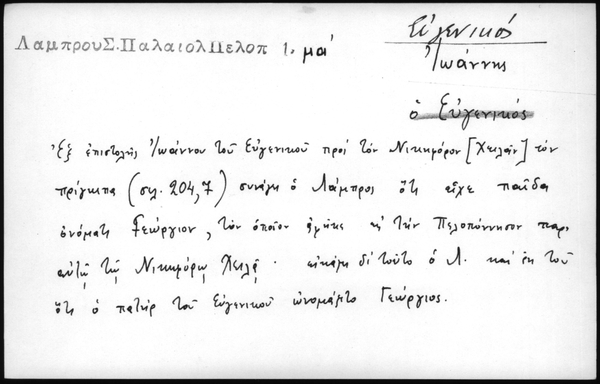 Λαμπρου Σ. Παλαιολ Πελοπ 1. μα'
Εὐγενικός
Ἰωάννης
ὁ Εὐγενικός
Ἐξ ἐπιστολῆς Ἰωάννου τοῦ Εὐγενικοῦ πρὸς τὸν Νικηφόρον [Χειλᾶν] τὸν
πρίγκιπα (σελ. 204,7) συνάγει ὁ Λάμπρος ὅτι εἶχε παῖδα
ὀνόματι Γεώργιον, τὸν ὁποῖον ἀφῆκε εἰς τὴν Πελοπόννησον παρ'
αὐτῷ τῷ Νικηφόρῳ Χειλᾷ. εἰκάζει διὰ τοῦτο ὁ Λ. καὶ ἐκ τοῦ
ὅτι ὁ πατὴρ τοῦ Εὐγενικοῦ ὠνομάζετο Γεώργιος.